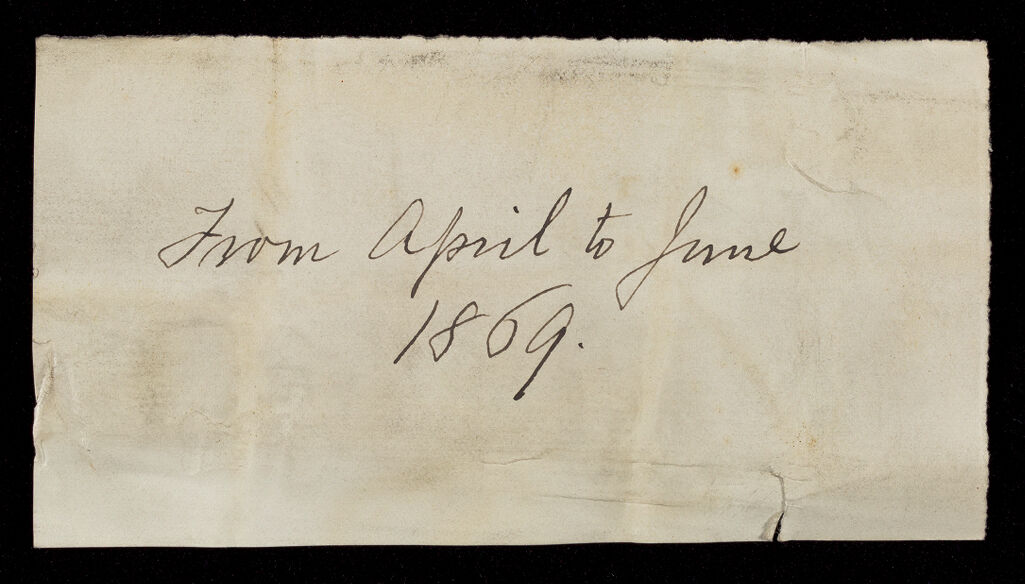 From April to June
1869.